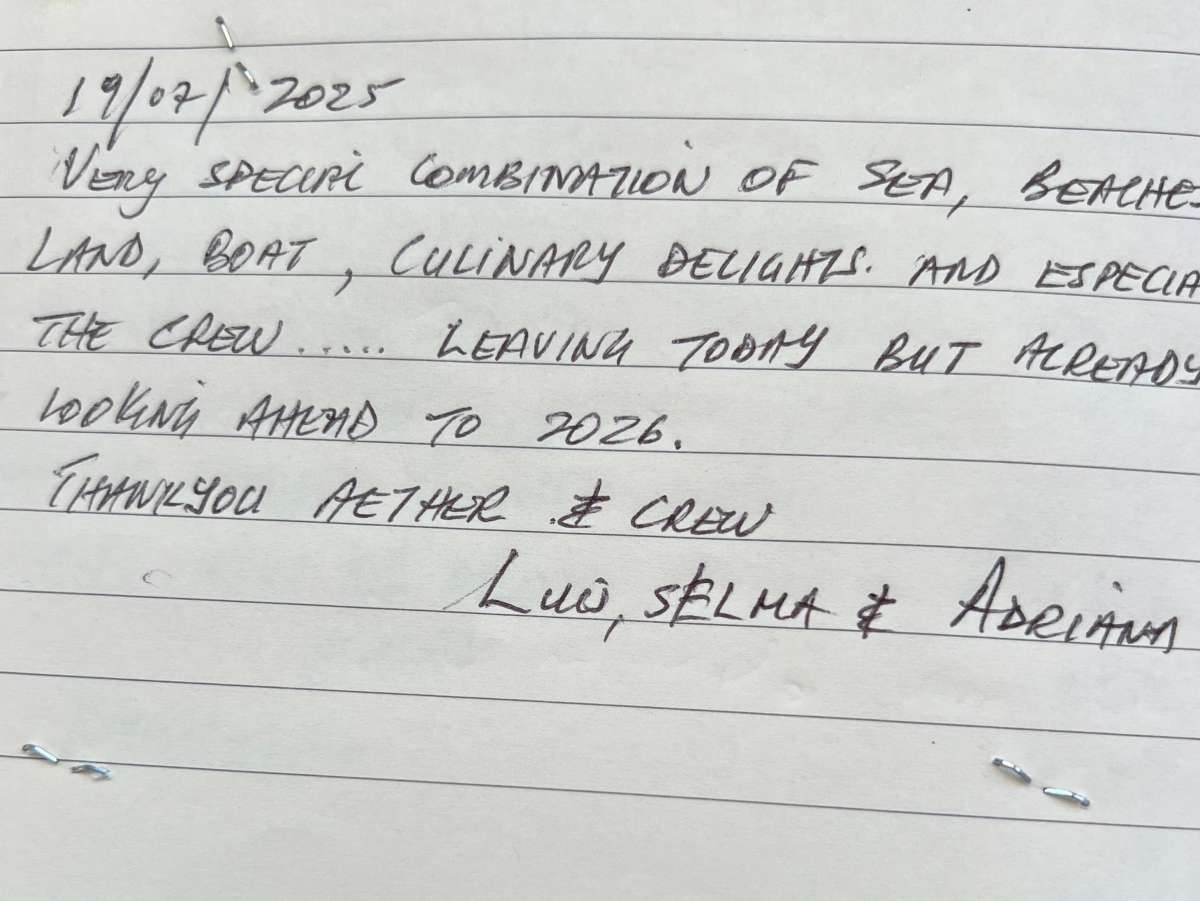 19/07/2025
VERY SPECIAL COMBINATION OF SEA, BEACHES
LAND, BOAT, CULINARY DELIGHTS. AND ESPECIA
THE CREW..... LEAVING TODAY BUT ALREADY
LOOKING AHEAD TO 2026.
THANKYOU AETHER & CREW
SELMA & ADRIANA